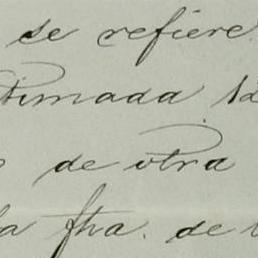 se refiere
timada 12
de otra
la fha. de